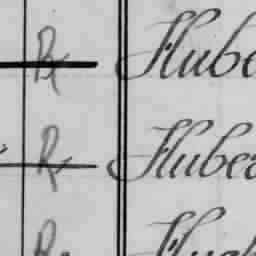 R Hube
R Huber
R